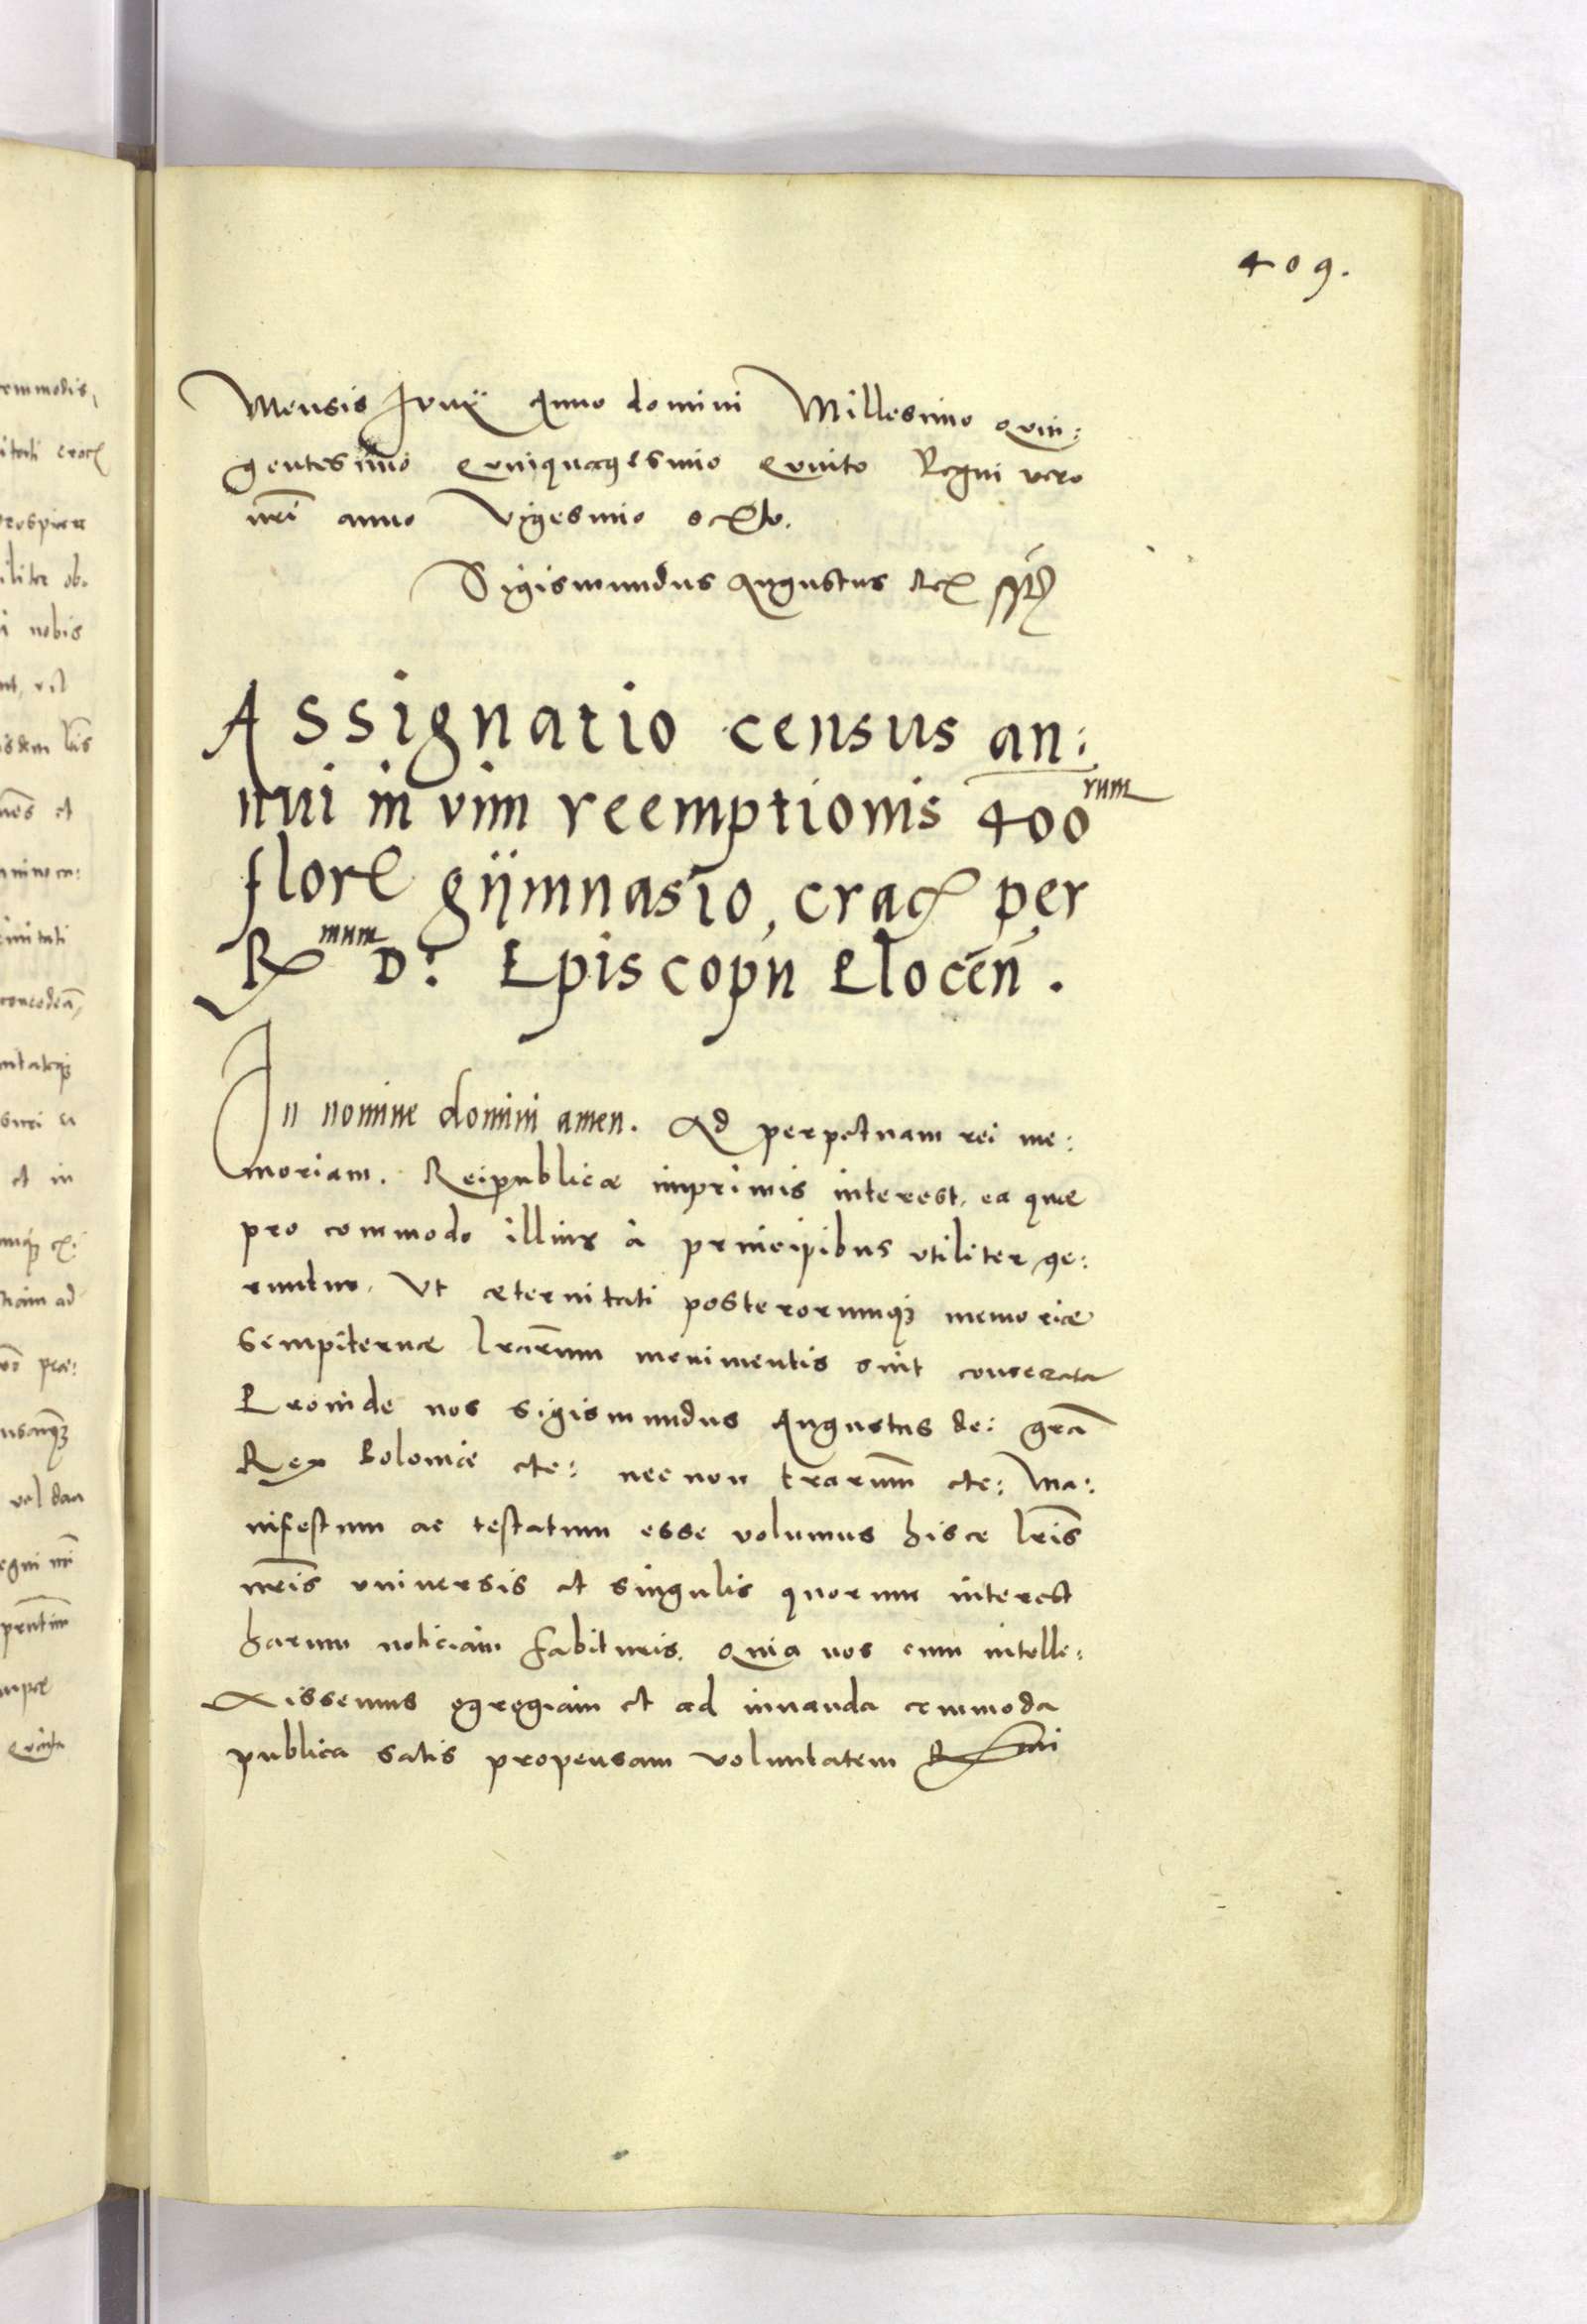 409.
Mensis Junij Anno domini Millesimo Quin:
gentesimo Quinquagesimo Quinto Regni vero
nri anno Vigesimo sexto.
Sigismundus Augustus Rex
Assignatio census an:
nui in vim reemptionis 400rum
flor gijmnasio, crac per
Rmum D: Episcopu Plocen.
In nomine domini amen. Ad perpetuam rei me:
moriam. Reipublicæ imprimis interest, ea quæ
pro commodo illius à principibus vtiliter ge:
runtur, Vt æternitati posterorumq memoriæ
sempiternæ lrarum monimentis sint consecrata
Proinde nos Sigismundus Augustus dei gra
Rex Poloniæ etc: necnon trarum etc: Ma:
nifestum ac testatum esse volumus hisce lris
nris vniuersis et singulis quorum interest
harum noticiam habituris. Quia nos cum intelle:
xissemus egregiam et ad iuuanda commoda
publica satis propensam voluntatem Rmi
commodis,
nobis
et
et in
ad
vel